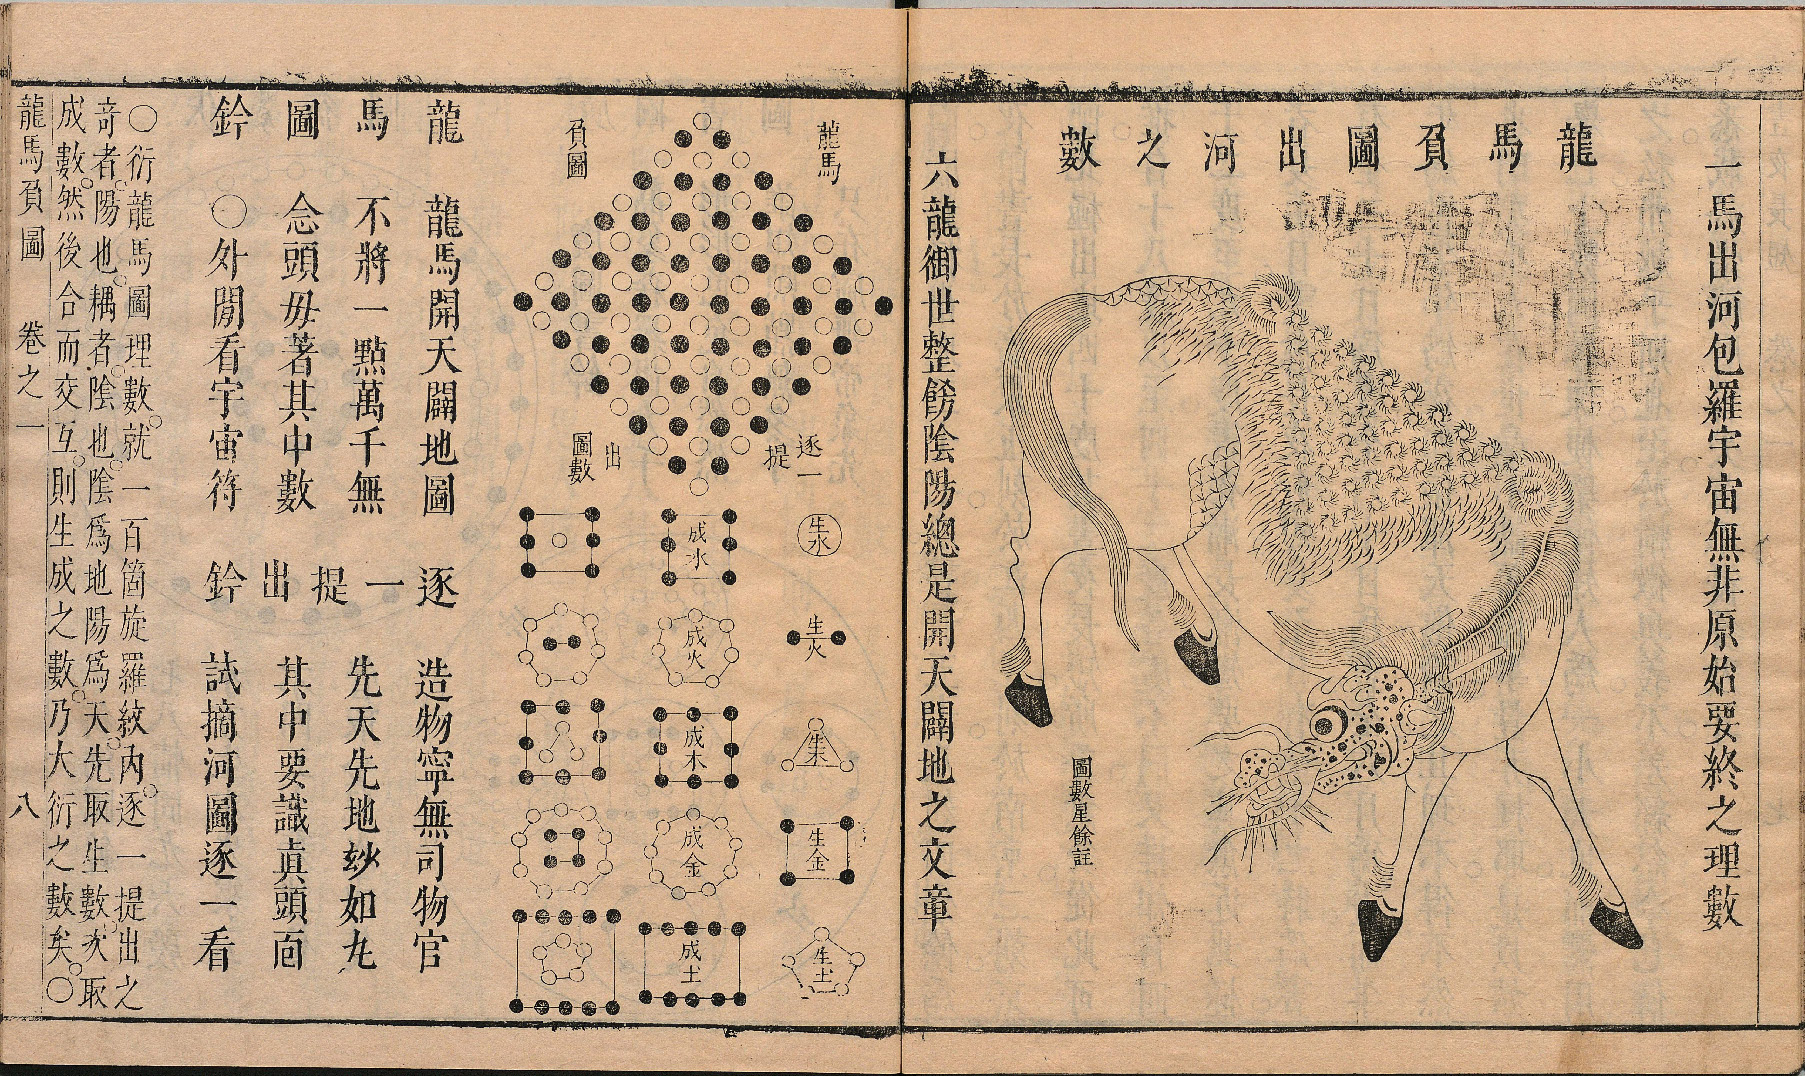 一馬出河包羅宇宙無非原始要終之理數
龍馬負圖出河之數
圖數星餘註
六龍御世整飭陰陽總是開天闢地之文章
龍馬
負圖
逐一
提
出
圖數
生水
成水
生火
成火
生木
成木
生金
成金
生土
成土
龍馬圖鈐
龍馬開天闢地圖
不將一點萬千無
念頭毋著其中數
○外閒看宇宙符
逐一提出鈐
造物寧無司物官
先天先地玅如丸
其中要識真頭面
試摘河圖逐一看
○衍龍馬圖理數就一百箇旋羅紋內逐一提出之
竒者陽也耦者陰也陰為地陽為天先取生數次取
成數然後合而交互則生成之數乃大衍之數矣○
龍馬負圖 卷之一 八